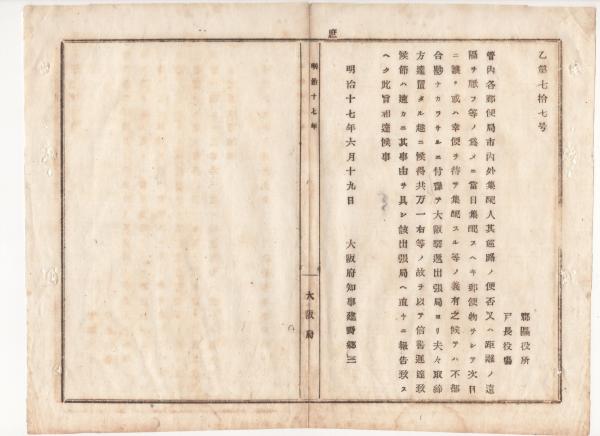 庶
乙第七拾七号
郡區役所
戸長役場
管内各郵便局市内外集配人其道路ノ便否又ハ距離ノ遠
隔ヲ厭フ等ノ為メニ當日集配スヘキ郵便物ヲシテ次日
ニ譲リ或ハ幸便ヲ待テ集配スル等ノ義有之候テハ不都
合尠ナカラサルニ付豫テ大阪驛逓出張局ヨリ夫々取締
方達置タル趣ニ候得共万一右等ノ故ヲ以テ信書遅達致
候節ハ速カニ其事由ヲ具シ該出張局ヘ直チニ報告致ス
ヘク此旨相達候事
明治十七年六月十九日
大阪府知事建野郷三
明治十七年
大阪府